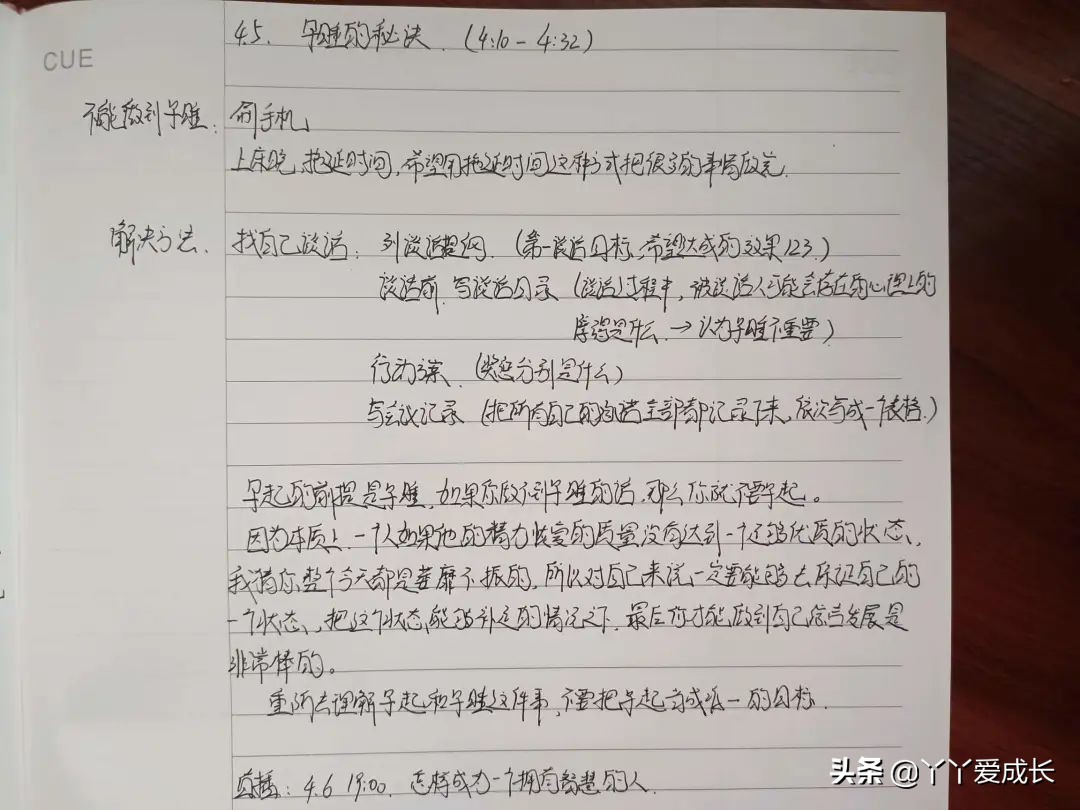 4.5. 早睡的秘诀. (4:10 - 4:32)
CUE
不能做到早睡: 刷手机
上床晚, 拖延时间, 希望用拖延时间这种方式把很多的事情做完.
解决方法. 找自己谈话: 列谈话提纲. (第一谈话目标, 希望达成的效果123)
谈话前, 写谈话目录 (谈话过程中, 被谈话人可能会存在的心理上的
障碍是什么. → 认为早睡不重要)
行动方案. (奖惩分别是什么)
写会议记录 (把所有自己的对话全部都记录下来, 依次写成一个表格.)
早起的前提是早睡, 如果你做不到早睡的话, 那么你就不要早起。
因为本质上, 一个人如果他的精力恢复的质量没有达到一个足够优质的状态,
我猜你整个今天都是萎靡不振的, 所以对自己来说, 一定要能够去保证自己的
一个状态, 把这个状态能够补足的情况之下, 最后你才能做到自己 发展是
非常棒的。
重新去理解早起和早睡这件事, 不要把早起当成唯一的目标.
直播: 4.6 19:00. 怎样成为一个拥有智慧的人.
头条 @丫丫爱成长